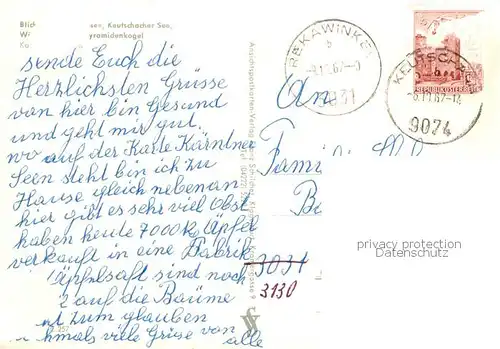 see, Keutschacher See,
Pyramidenkogel
sende Euch die
Herzlichsten Grüsse
von hier bin Gesund
und geht mir gut.
wo auf der Karte Kärntner
Seen steht bin ich zu
Hause gleich nebenan
hier gibt es sehr viel Obst
haben heute 7000 K Äpfel
verkauft in eine Fabrik
Äpfelsaft sind noch
auf die Bäume
zum glauben
chmals viele Grüse von
alle
REKAWINKEL
b
KEUTSCHACH
9074
REPUBLIK ÖSTERREICH
An
Fami
3031
3130
privacy protection
Datenschutz